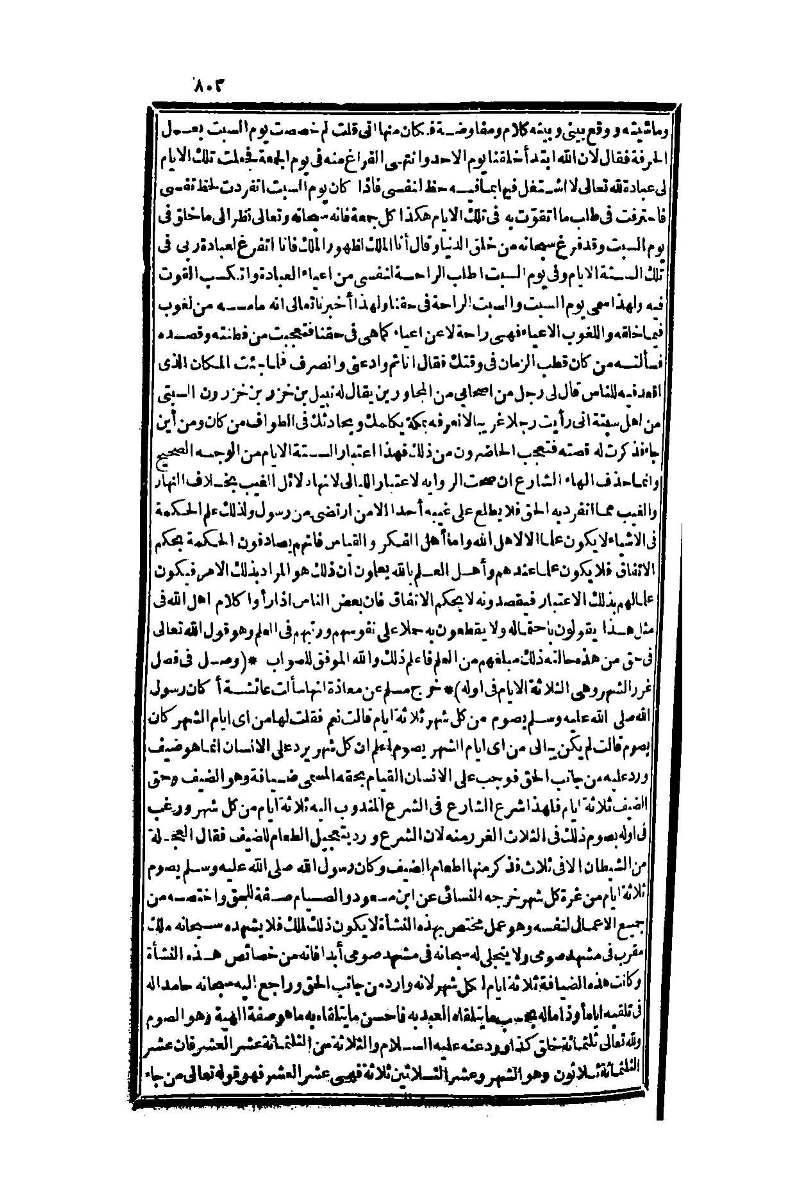 ٨٠٣
وماشيته ووقع بيني وبينه كلام ومفاوضة فكان منها اني قلت لم خصصت يوم السبت بعمل
الحرفة فقال لان الله ابتدأ خلقنا يوم الاحد وانتهى الفراغ منه في يوم الجمعة فجعلت تلك الايام
لى عبادة لله تعالى لا اشتغل فيها بما فيه حظ لنفسى فاذا كان يوم السبت انفردت لحظ نفسى
فاحترفت فى طلب ما اتقوّت به فى تلك الايام هكذا كل جمعة فانه سبحانه وتعالى نظر الى ما خلق فى
يوم السبت وقد فرغ سبحانه من خلق الدنيا وقال أنا الملك لظهور الملك فانا اتفرغ لعبادة ربى فى
تلك الستة الايام وفى يوم السبت اطلب الراحة لنفسى من اعياء العبادة واتكسب القوت
فيه ولهذا سمى يوم السبت والسبت الراحة فى حقنا ولهذا أخبرنا تعالى انه ما مسه من لغوب
فيما خلقه واللغوب الاعياء فهى راحة لا عن اعياء كما هى فى حقنا فتعجبت من فطنته وقصده
فسألته من كان قطب الزمان فى وقتك فقال انا ثم وادعنى وانصرف فلما جئت المكان الذى
اقعد فيه للناس قال لى رجل من اصحابى من المجاورين يقال له نبيل بن خزر بن خزرون السبتى
من اهل سبتة انى رأيت رجلا غريبا لا نعرفه بمكة يكلمك ويحادثك فى الطواف من كان ومن أين
جاء فذكرت له قصته فتعجب الحاضرون من ذلك فهذا اعتبار الستة الايام من الوجه الصحيح
وانما حذف الهاء الشارع ان صحت الروايه لاعتبار الليالى لانها دلائل الغيب بخلاف النهار
والغيب مما انفرد به الحق فلا يطلع على غيبه أحدا الا من ارتضى من رسول ولذلك علم الحكمة
فى الاشياء لا يكون علما الا لاهل الله واما أهل الفكر والقياس فانهم يصادفون الحكمة بحكم
الاتفاق فلا يكون علما عندهم وأهل العلم بالله يعلمون ان ذلك هو المراد بذلك الامر فيكون
علما لهم بذلك الاعتبار فيقصدونه لا بحكم الاتفاق فان بعض الناس اذا رأوا كلام اهل الله فى
مثل هذا يقولون باحتماله ولا يقطعون به حملا على نفوسهم ورتبهم فى العلم وهو قول الله تعالى
فى حق من هذه حالته ذلك مبلغهم من العلم فاعلم ذلك والله الموفق للصواب *(وصل فى فصل
غرر الشهر وهى الثلاثة الايام فى اوله)* خرج مسلم عن معاذة انها سألت عائشة أكان رسول
الله صلى الله عليه وسلم يصوم من كل شهر ثلاثة ايام قالت نعم فقلت لها من اى ايام الشهر كان
يصوم قالت لم يكن يبالى من اى ايام الشهر يصوم اعلم ان كل شهر يرد على الانسان انما هو ضيف
ورد عليه من جانب الحق فوجب على الانسان القيام بحقه المسمى ضيافة وهو الضيف وحق
الضيف ثلاثة ايام فلهذا شرع الشارع فى الشرع المندوب اليه ثلاثة ايام من كل شهر ورغب
فى اوله بصوم ذلك فى الثلاث الغرر منه لان الشرع ورد بتعجيل الطعام للضيف فقال العجلة
من الشيطان الا فى ثلاث فذكر منها اطعام الضيف وكان رسول الله صلى الله عليه وسلم يصوم
ثلاثة ايام من غرة كل شهر خرجه النسائى عن ابن مسعود والصيام صفة للحق واختصه من
جميع الاعمال لنفسه وهو عمل مختص بهذه النشأة لا يكون ذلك لملك فلا يشهده سبحانه ملك
مقرب فى مشهد صومى ولا يتجلى له سبحانه فى مشهد صومى أبدا فانه من خصائص هذه النشأة
وكانت هذه الضيافة ثلاثة ايام لكل شهر لانه وارد من جانب الحق وراجع اليه سبحانه حامدا له
فى تلقيه اياه أو ذاما له بحسب ما يتلقاه العبد به فاحسن ما يتلقاه به ما هو صفة الهية وهو الصوم
ولله تعالى ثلثمائة خلق كذا ورد عنه عليه السلام والثلاثة من الثلثمائة عشر العشر فان عشر
الثلثمائة ثلاثون وهو الشهر وعشر الثلاثين ثلاثة فهى عشر العشر فهو قوله تعالى من جاء